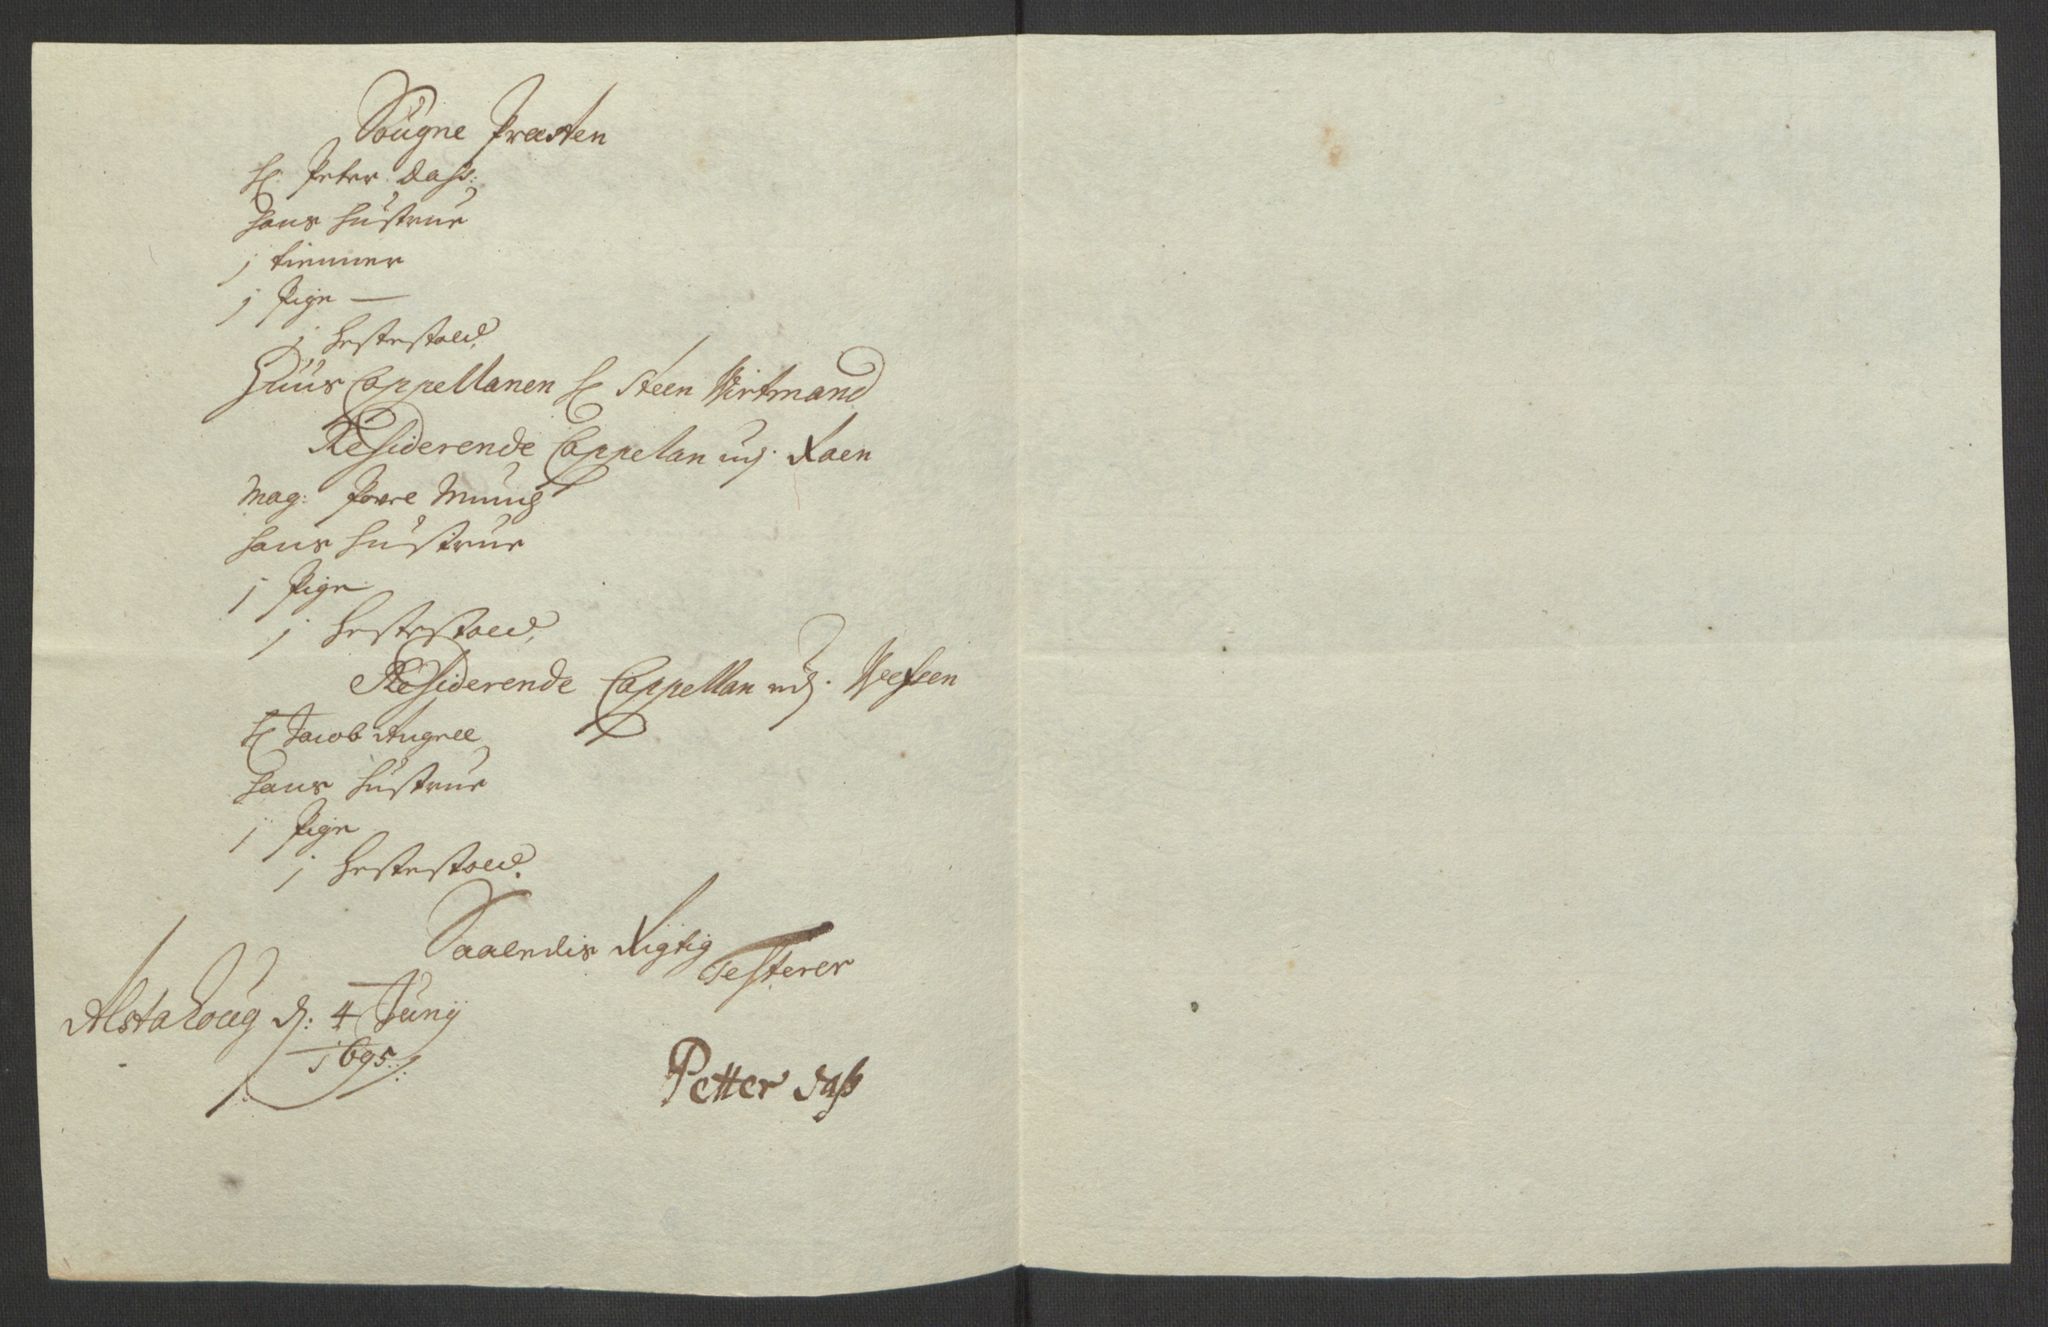 Sougne Præsten
H. Peter Dass:
hans hustrue
j tienner
j Pige —
j hestestald,
Huus Cappellanen H Steen Wirtmand
Residerende Cappelan udj. Raen
Mag: Povre Munch
hans hustrue
j Pige
j hestestald,
Residerende Cappellan udj. Vefsen
H Jacob Angell
hans hustrue
j Pige
j hestestald.
Saaledis Rigtig Testerer
Alstahoug d: 4 Junij
1695:
Petter Dass